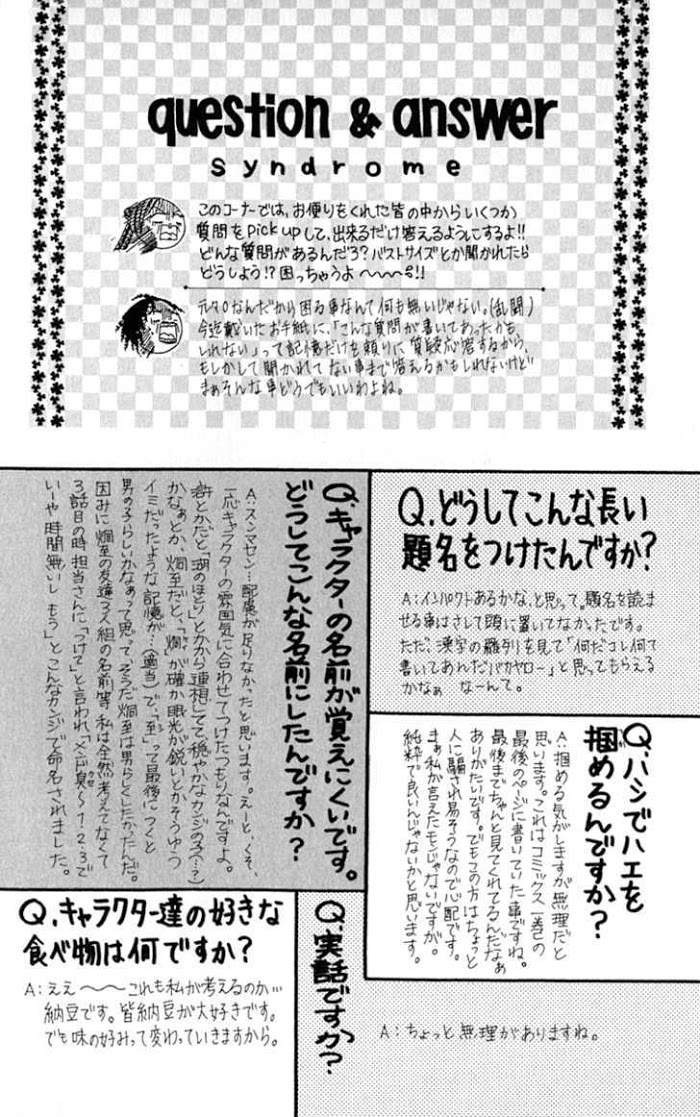 question & answer
syndrome
このコーナーでは、お便りをくれた皆の中からいくつか
質問をPick upして、出来るだけ答えるようにするよ!!
どんな質問があるんだろ?バストサイズとか聞かれたら
どうしよう!?困っちゃうよ〜〜〜!!
なんだから困る事なんて何も無いじゃない。(乱闘)
今迄戴いたお手紙に、「こんな質問が書いてあったかも
しれない」って記憶だけを頼りに質疑応答するから、
もしかして聞かれてない事まで答えるかもしれないけど
まぁそんな事どうでもいいわよね。
Q.どうしてこんな長い
題名をつけたんですか?
A:インパクトあるかな、と思って。題名を読ま
せる事はさして頭に置いてなかったです。
ただ、漢字の羅列を見て「何だコレ何て
書いてあんだバカヤロー」と思ってもらえる
かなぁ なーんて。
Q.キャラクターの名前が覚えにくいです。
どうしてこんな名前にしたんですか?
A:スンマセン…配慮が足りなかったと思います。えーと、くそ、
一応キャラクターの雰囲気に合わせてつけたつもりなんですよ。
滸とかだと、「湖のほとり」とかから連想してて、穏やかなカンジの子(…?)
かなぁとか、炯至だと、「炯」が確か眼光が鋭いとかそうゆう
イミだったような記憶が…(適当)で、「至」って最後につくと
男の子らしいかなぁって思って。そうだ炯至は男らしくしたかったんだ。
因みに炯至の友達3人組の名前等、私は全然考えてなくて
3話目の時担当さんに「つけて」と言われ、「メンド臭〜1・2・3で
いーや時間無いしもう」とこんなカンジで命名されました。
Q.ハシでハエを
掴めるんですか?
A:掴める気がしますが無理だと
思います。これはコミックス一巻の
最後のページに書いていた事ですね。
最後までちゃんと見てくれてるんだなぁ
ありがたいです。でもこの方はちょっと
人に騙され易そうなので心配です。
まぁ私が言えたモンじゃないですが。
純粋で良いんじゃないかと思います。
Q.キャラクター達の好きな
食べ物は何ですか?
A:ええ〜〜〜これも私が考えるのか…
納豆です。皆納豆が大好きです。
でも味の好みって変わっていきますから。
Q.実話ですか?
A:ちょっと無理がありますね。